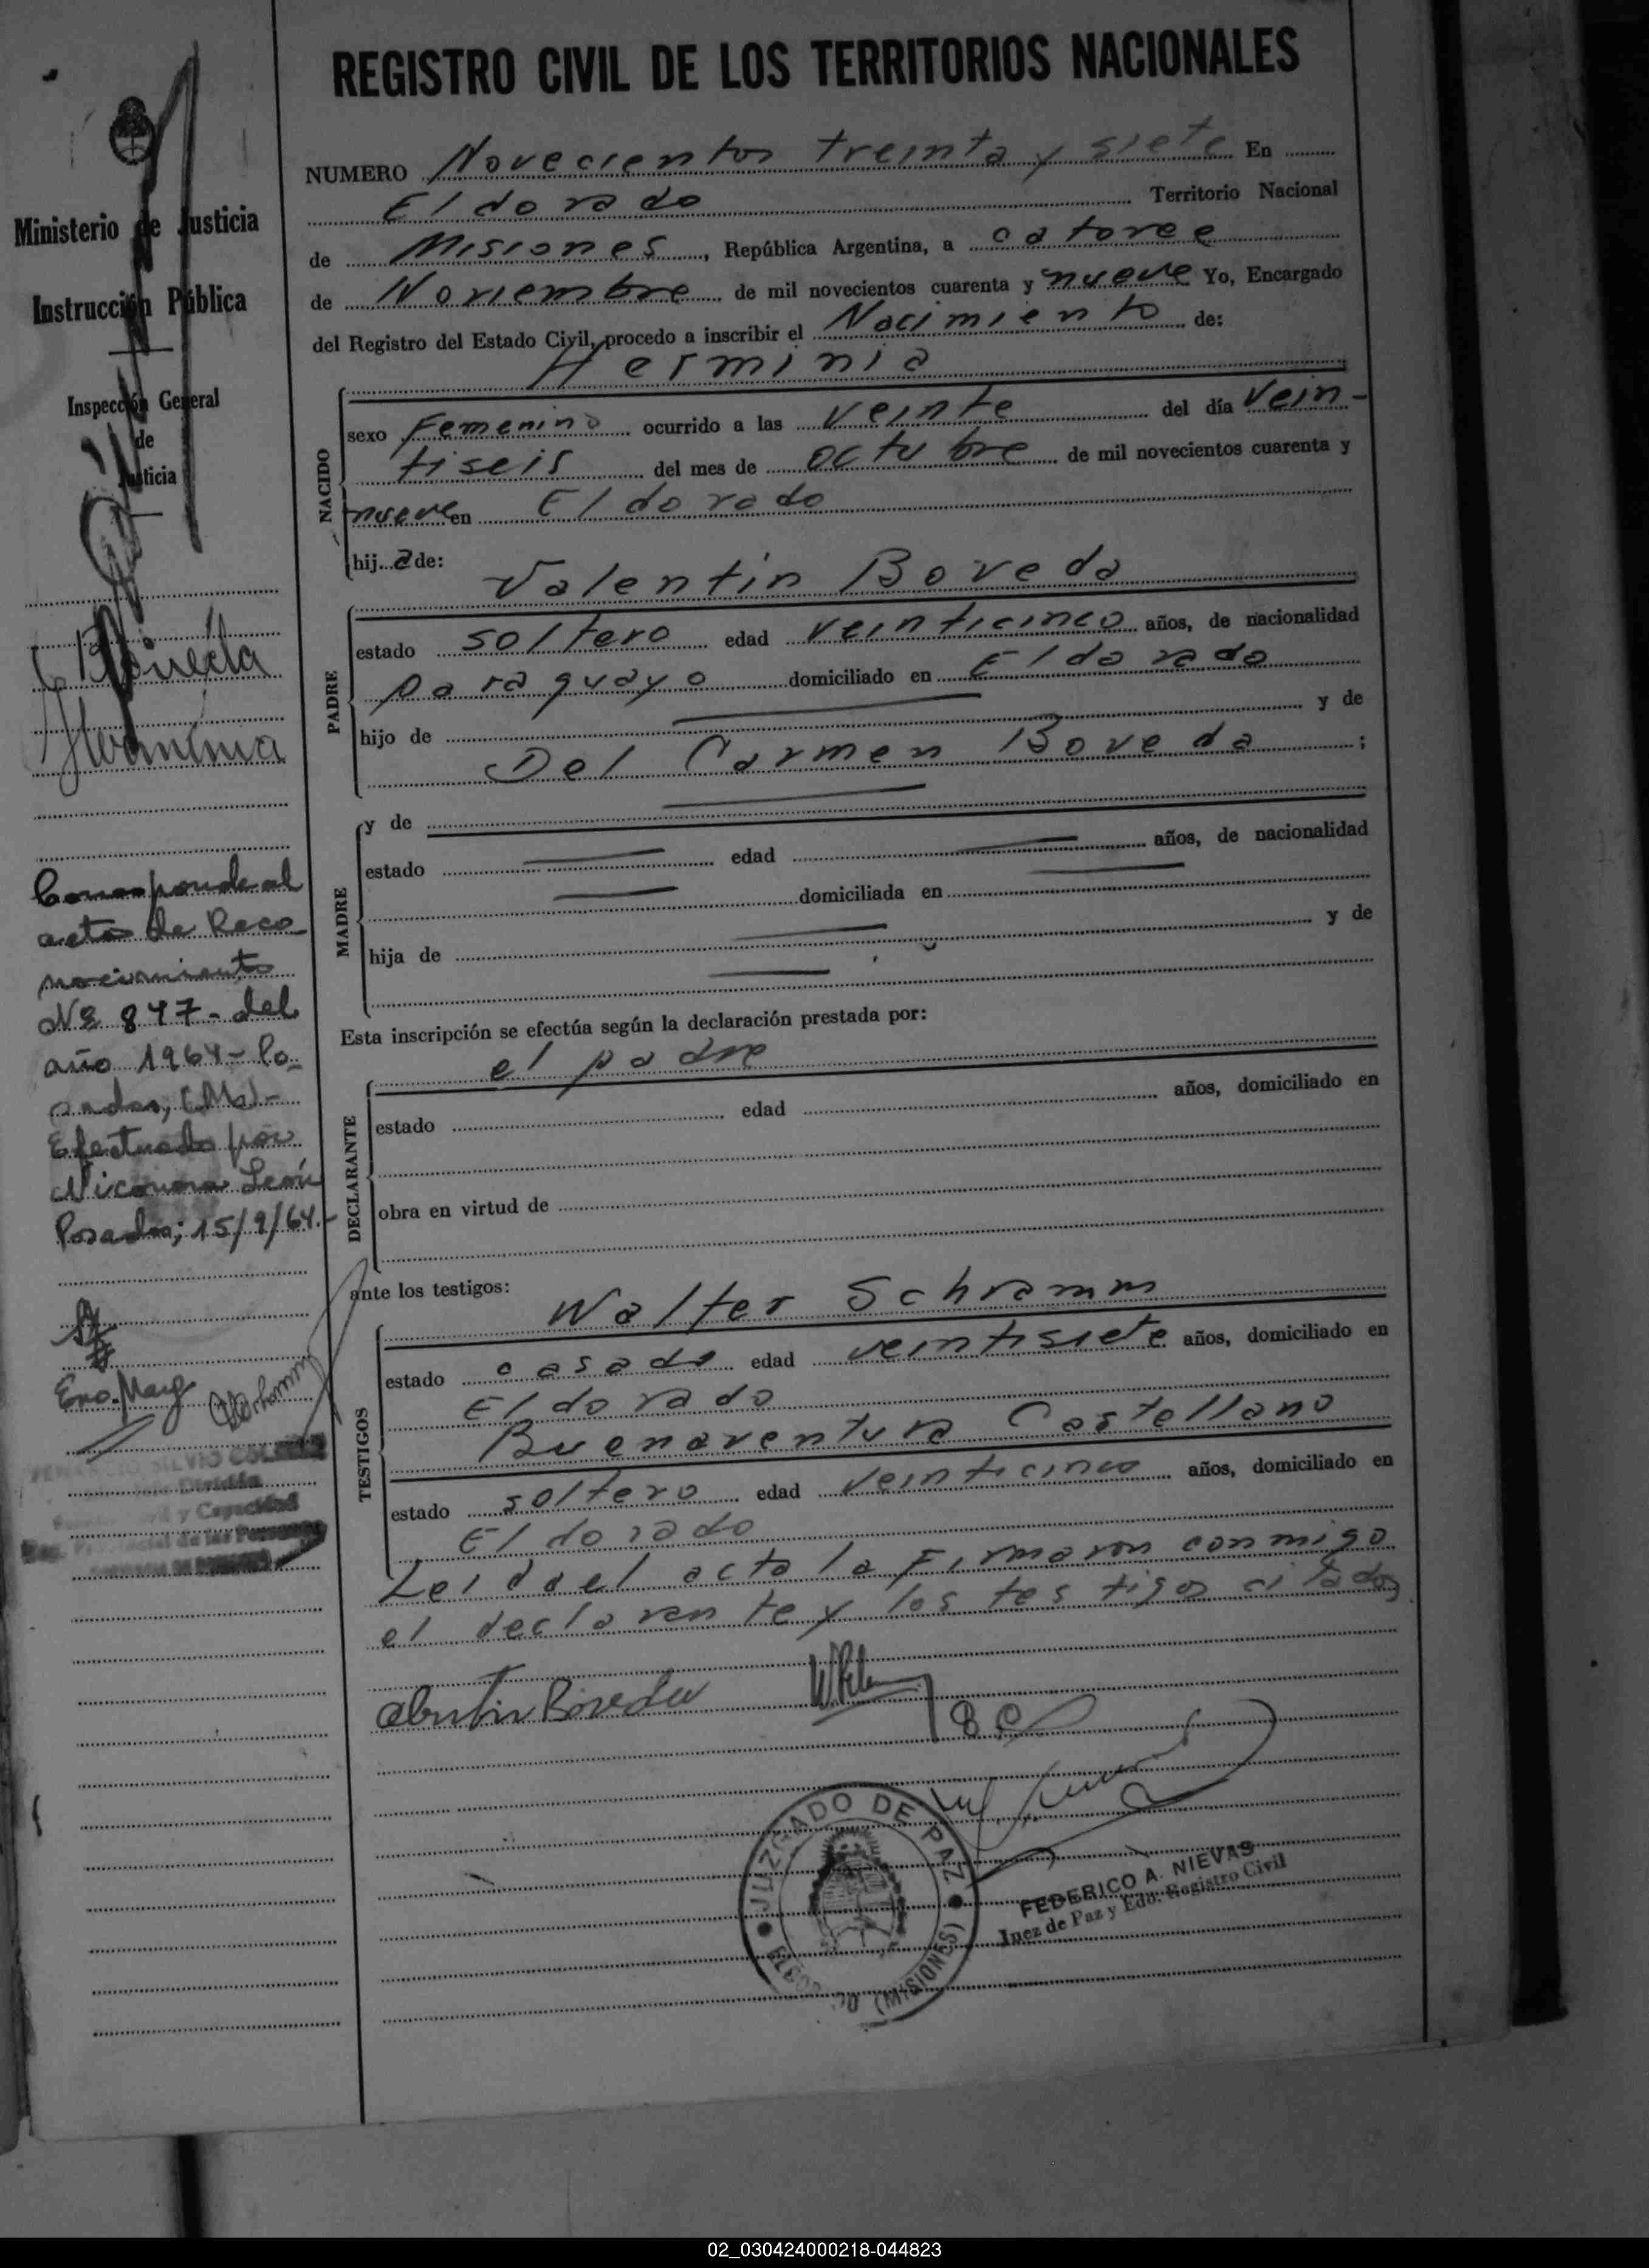 REGISTRO CIVIL DE LOS TERRITORIOS NACIONALES
NUMERO Novecientos treinta y siete En
Eldorado Territorio Nacional
de Misiones, República Argentina, a catorce
de Noviembre de mil novecientos cuarenta y nueve Yo, Encargado
del Registro del Estado Civil, procedo a inscribir el Nacimiento de:
Herminia
NACIDO
sexo Femenino ocurrido a las veinte del día vein-
tiseis del mes de octubre de mil novecientos cuarenta y
nueve en Eldorado
hij a de:
Valentin Boveda
PADRE
estado soltero edad veinticinco años, de nacionalidad
paraguayo domiciliado en Eldorado
hijo de y de
Del Carmen Boveda ;
MADRE
y de
estado edad años, de nacionalidad
domiciliada en
hija de y de
Esta inscripción se efectúa según la declaración prestada por:
el padre
DECLARANTE
estado edad años, domiciliado en
obra en virtud de
ante los testigos:
Walter Schramm
TESTIGOS
estado casado edad veintisiete años, domiciliado en
Eldorado
Buenaventura Castellano
estado soltero edad veinticinco años, domiciliado en
Eldorado
Leida el acta la Firmaron conmigo
el declarante y los testigos citados
Valentin Boveda
JUZGADO DE PAZ
ELDORADO (MISIONES)
FEDERICO A. NIEVAS
Juez de Paz y Edo. Registro Civil
Ministerio de Justicia
Instrucción Pública
Inspección General
de
Justicia
Bóveda
Herminia
Corresponde al
acta de Reco
nocimiento
Nº 847- del
año 1964- Po
sadas, (Ms)-
Efectuado por
Nicanora León
Posadas; 15/9/64.-
SILVIO
División
y Capacidad
Provincial de las Personas
02_030424000218-044823